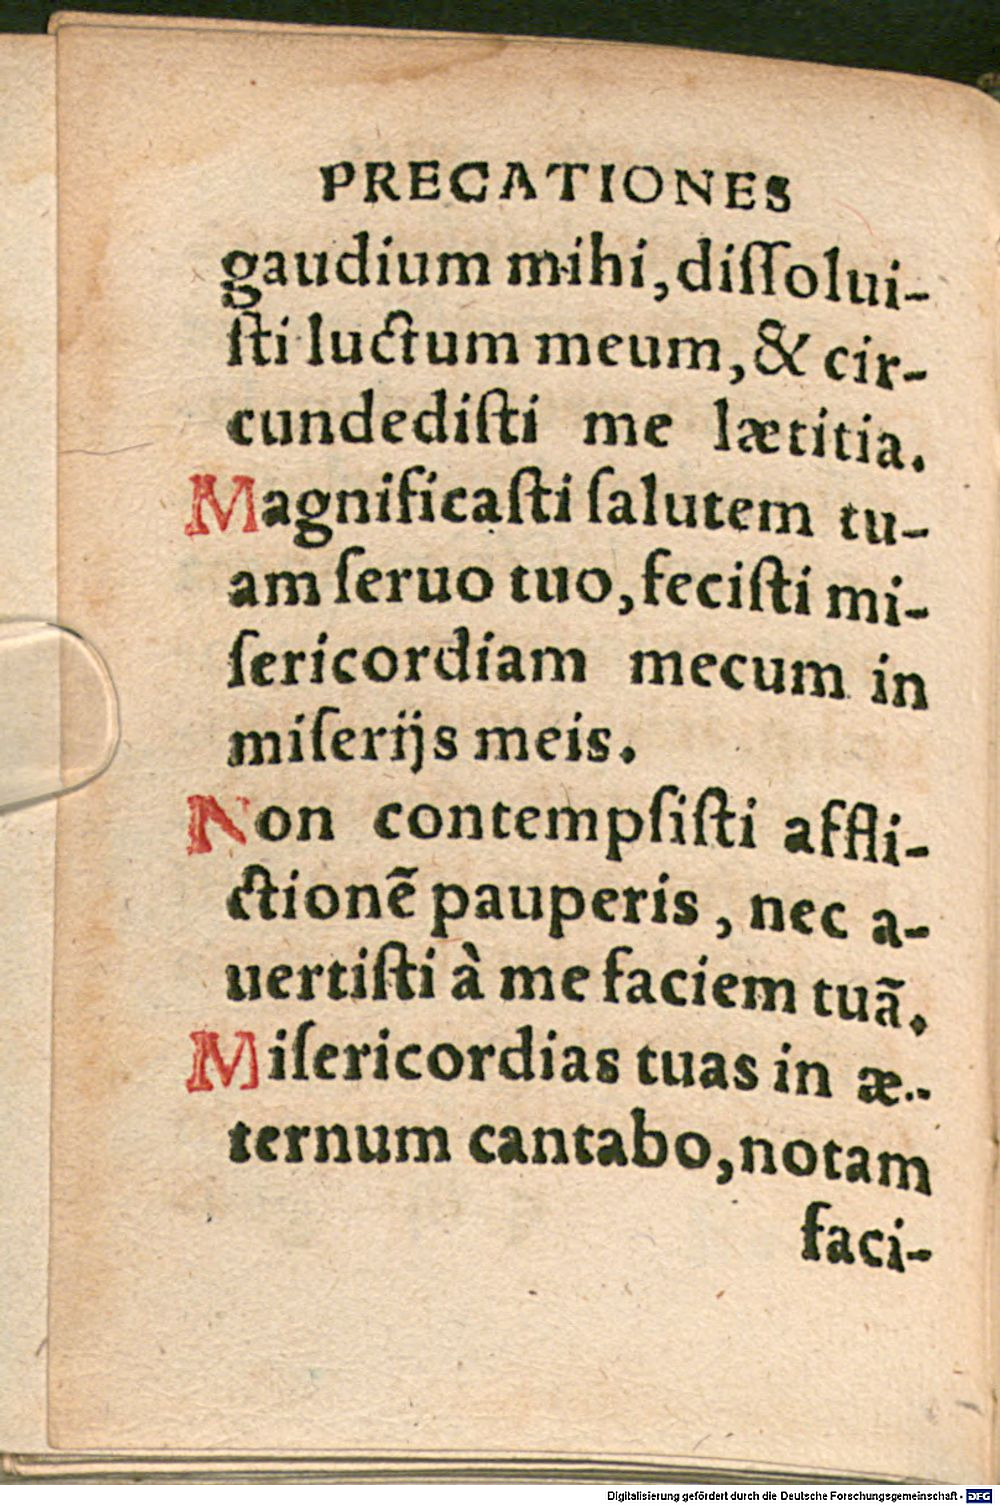 PRECATIONES
gaudium mihi, diſſolui-
ſti luctum meum, & cir-
cundediſti me lætitia.
Magnificaſti ſalutem tu-
am ſeruo tuo, feciſti mi-
ſericordiam mecum in
miſerijs meis.
Non contempſiſti affli-
ctionẽ pauperis, nec a-
uertiſti à me faciem tuã.
Miſericordias tuas in æ-
ternum cantabo, notam
faci-
Digitalisierung gefördert durch die Deutsche Forschungsgemeinschaft - DFG